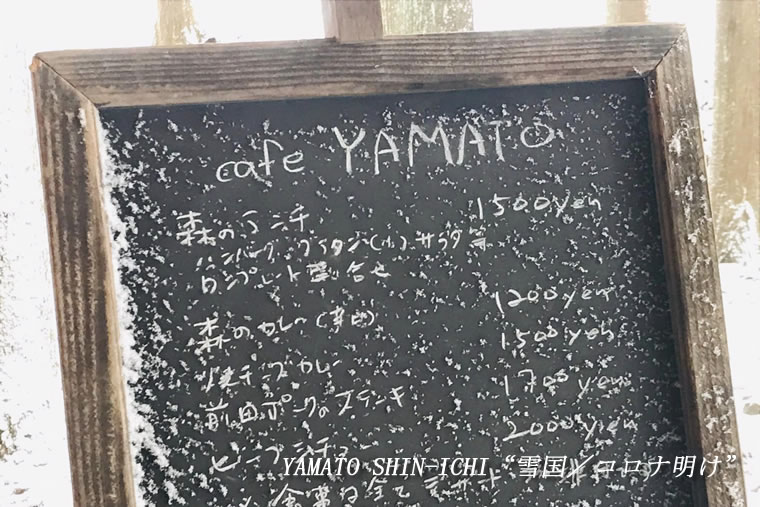 cafe YAMATO
森のランチ 1500yen
ハンバーグ、グラタン(小)サラダ等
ワンプレート盛り合せ
森のカレー(辛口) 1200yen
焼チーズカレー 1500yen
前田ポークのステーキ 1700yen
ビーフシチュー 2000yen
食事は全て
YAMATO SHIN-ICHI “雪国×コロナ明け”